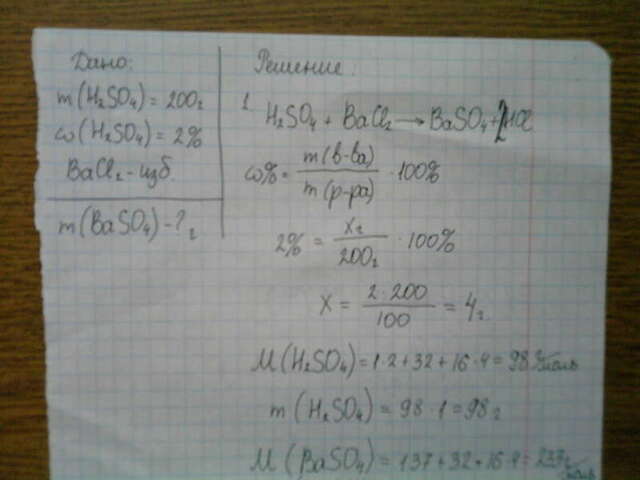 Дано:
m(H₂SO₄) = 200г
ω(H₂SO₄) = 2%
BaCl₂ - изб.
m(BaSO₄) - ? г
Решение:
1. H₂SO₄ + BaCl₂ → BaSO₄ + 2HCl
ω% = m(в-ва) / m(р-ра) · 100%
2% = xг / 200г · 100%
x = 2·200 / 100 = 4г
M(H₂SO₄) = 1·2+32+16·4 = 98г/моль
m(H₂SO₄) = 98·1 = 98г
M(BaSO₄) = 137+32+16·4 = 233г/моль